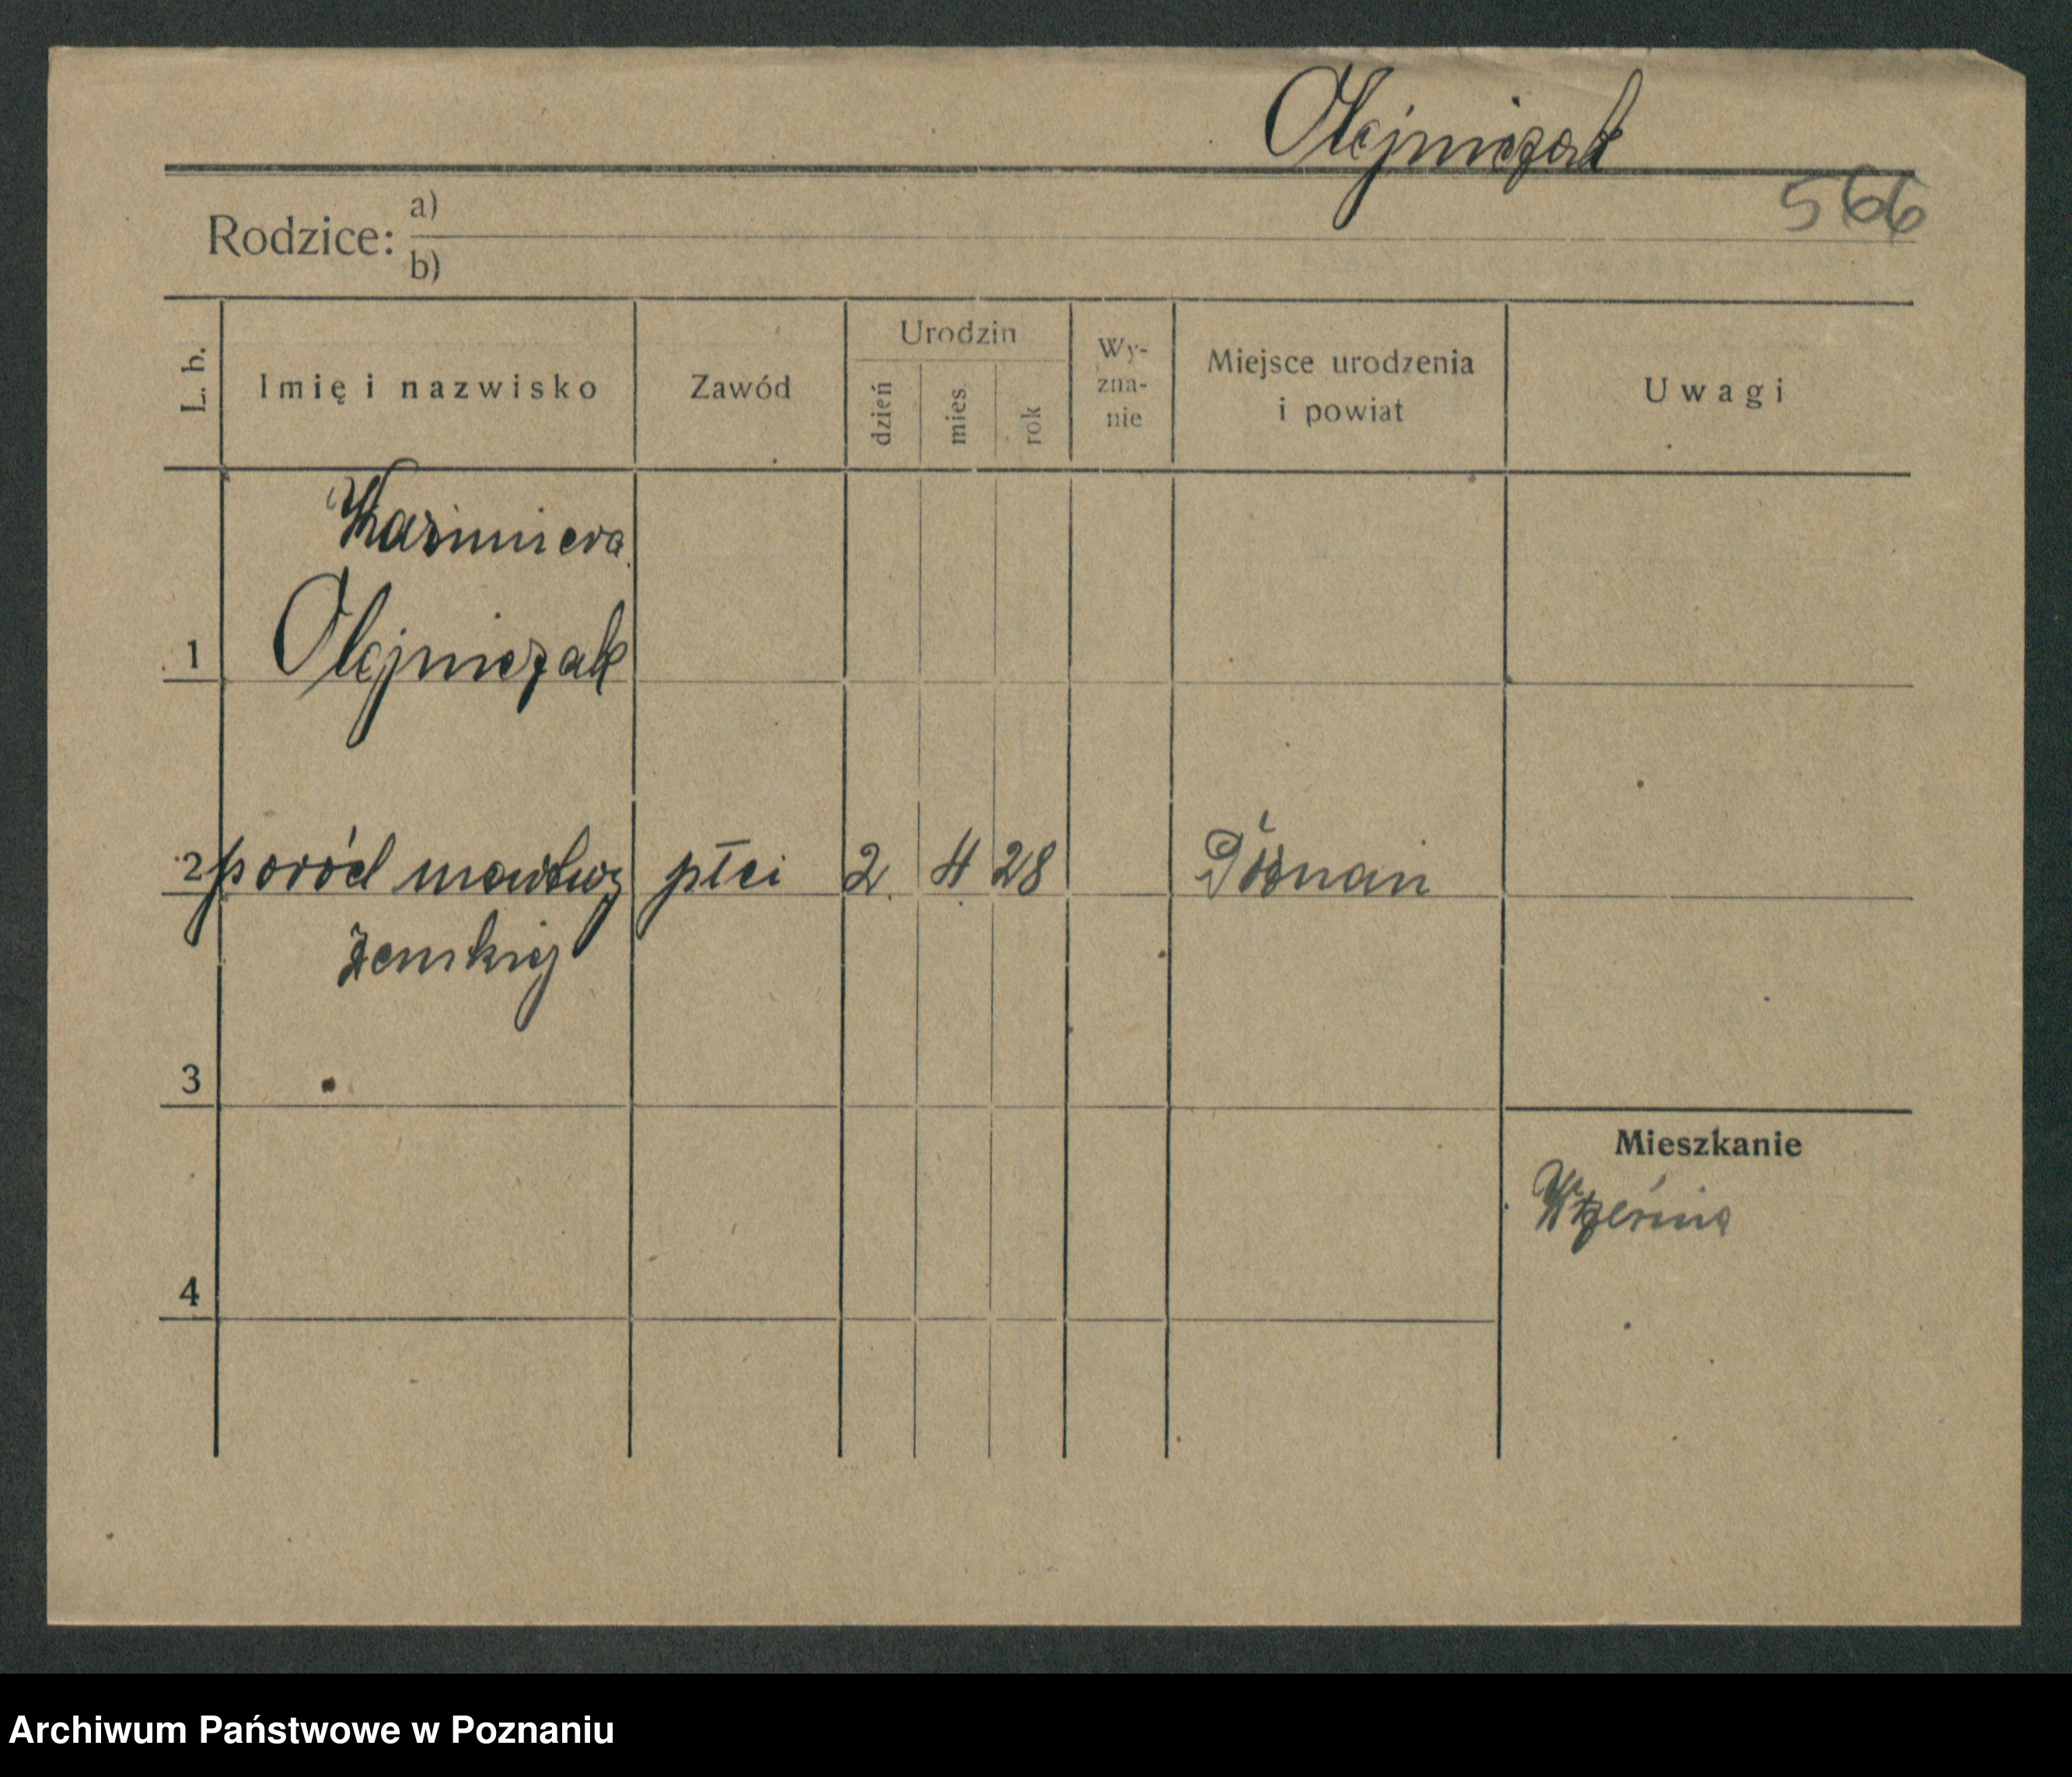 Olejniczak
566
Rodzice: a)
b)
L. b.
Imię i nazwisko
Zawód
Urodzin
dzień
mies.
rok
Wy-
zna-
nie
Miejsce urodzenia
i powiat
Uwagi
Kazimiera
1 Olejniczak
2 poród martwy płci 2. 4 28 Poznań
żeńskiej
3
Mieszkanie
Września
4
Archiwum Państwowe w Poznaniu